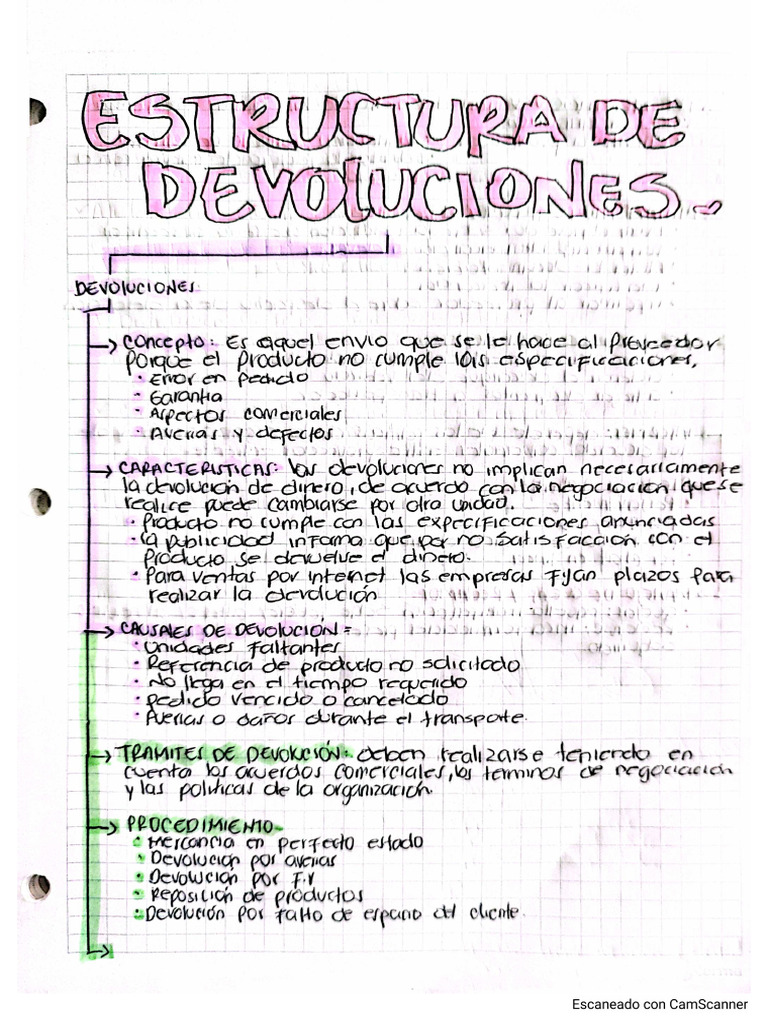 ESTRUCTURA DE
DEVOLUCIONES
DEVOLUCIONES
Concepto: Es aquel envio que se le hace al proveedor
porque el producto no cumple las especificaciones,
• Error en pedido
• Garantia
• Aspectos comerciales
• Averias y defectos
CARACTERISTICAS: las devoluciones no implican necesariamente
la devolución de dinero, de acuerdo con la negociación que se
realice puede cambiarse por otra unidad.
• Producto no cumple con las expecificaciones anunciadas
• la publicidad informa que por no satisfacción con el
producto se devuelve el dinero.
• Para ventas por internet las empresas fijan plazos para
realizar la devolución
CAUSALES DE DEVOLUCIÓN=
• Unidades faltantes
• Referencia de producto no solicitado
• No llega en el tiempo requerido
• pedido vencido o cancelado
• Averias o daños durante el transporte.
TRAMITES DE DEVOLUCIÓN: deben realizarse teniendo en
cuenta los acuerdos comerciales, los terminos de negociación
y las politicas de la organización.
PROCEDIMIENTO-
• Mercancia en perfecto estado
• Devolución por averias
• Devolución por F.V
• Reposición de productos
• Devolución por falta de espacio del cliente.
Escaneado con CamScanner